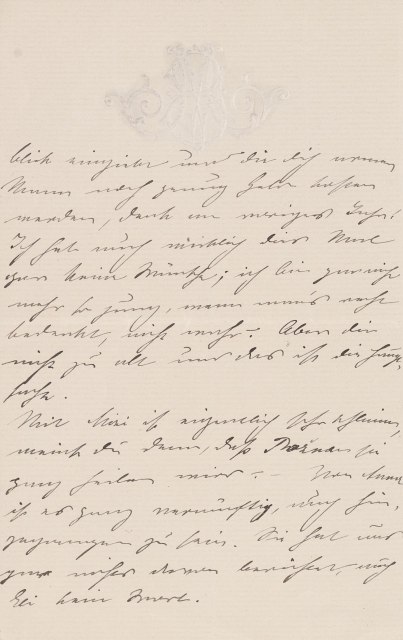 blick einzieht und die dich armen
Mann noch genug Geld kosten
werden, denk an voriges Jahr!
Ich hab auch wirklich dies Mal
gar keine Wünsche; ich bin gar nicht
mehr so jung, wenn man's recht
bedenkt, nicht wahr? Aber du
nicht zu alt und das ist die Haupt-
sache.
Mit Mimi ist eigentlich sehr schlimm,
meinst du denn, daß sie
ganz heilen wird? – Von Anna
ist es ganz vernünftig, auch hin-
gegangen zu sein. Sie hat uns
gar nichts davon berichtet, auch
Eli kein Wort.